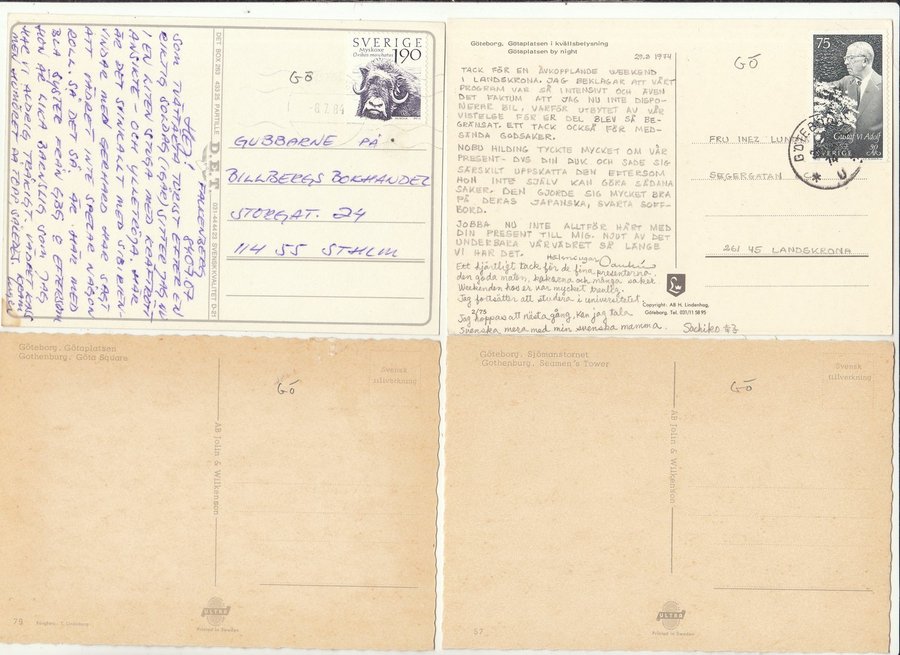 SVERIGE
Myskoxe
Ovibos moschatus
190
GÖ
- 8.7 84
GUBBARNE PÅ
BILLBERGS BOKHANDEL
STORGAT. 24
114 55 STHLM
DET BOX 260 433 25 PARTILLE
DET
031-44 44 23 SVENSK KVALITET D-21
HEJ! FALKENBERG 840707
SOM TURIST EFTER EN
RIKTIG SITTER JAG NU
I EN LITEN STUGA MED KRAFTPOST
ANSIKTE - OCH YLLETRÖJA. HÄR
ÄR DET SVINKALLT MED SIBIRIEN-
VINDAR MEN GERHARD HAR SAGT
ATT VÄDRET INTE SPELAR NÅGON
ROLL. SÅ DET SÅ. ÄR HÄR MED
BLA SYSTER FRÅN GBG & EFTERSOM
HON ÄR LIKA BARNSLIG SOM JAG
HAR VI ALDRIG TRÅKIGT. VÄDRET
MEN HUMÖRET PÅ TOPP, SÅLEDES.
Göteborg, Götaplatsen i kvällsbelysning
Götaplatsen by night
29.2 1974
GÖ
TACK FÖR EN AVKOPPLANDE WEEKEND
I LANDSKRONA. JAG BEKLAGAR ATT VÅRT
PROGRAM VAR SÅ INTENSIVT OCH ÄVEN
DET FAKTUM ATT JAG NU INTE DISPO-
NERAR BIL. VARFÖR UTBYTET AV VÅR
VISTELSE FÖR ER DEL BLEV SÅ BE-
GRÄNSAT. ETT TACK OCKSÅ FÖR MED-
SÄNDA GODSAKER.
NOBU HILDING TYCKTE MYCKET OM VÅR
PRESENT - DVS DIN DUK OCH SADE SIG
SÄRSKILT UPPSKATTA DEN EFTERSOM
HON INTE SJÄLV KAN GÖRA SÅDANA
SAKER. DEN GJORDE SIG MYCKET BRA
PÅ DERAS JAPANSKA, SVARTA SOFF-
BORD.
JOBBA NU INTE ALLTFÖR HÅRT MED
DIN PRESENT TILL MIG. NJUT AV DET
UNDERBARA VÅRVÄDRET SÅ LÄNGE
VI HAR DET.
Ett hjärtligt tack för de fina presenterna,
den goda maten, kakorna och många saker
Weekenden hos er var mycket trevlig.
Jag fortsätter att studera i universitetet.
2/75
Jag hoppas att nästa gång, kan jag tala
svenska mera med min svenska mamma.
Sachiko
75
Gustaf VI Adolf
SVERIGE
GÖTEBORG
FRU INEZ
SEGERGATAN
261 45 LANDSKRONA
Copyright: AB H. Lindenhag,
Göteborg. Tel. 031/11 58 95
Göteborg. Götaplatsen
Gothenburg. Göta Square
GÖ
Svensk
tillverkning
AB Jolin & Wilkenson
ULTRA
Printed in Sweden
79
Göteborg. Sjömanstornet
Gothenburg. Seamen's Tower
GÖ
Svensk
tillverkning
AB Jolin & Wilkenson
ULTRA
Printed in Sweden
57